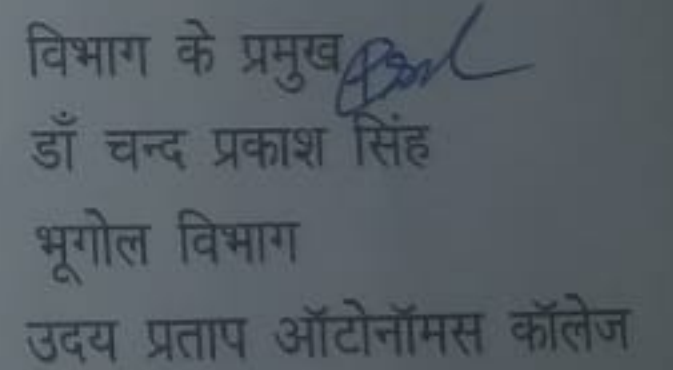 विभाग के प्रमुख
डाँ चन्द प्रकाश सिंह
भूगोल विभाग
उदय प्रताप ऑटोनॉमस कॉलेज